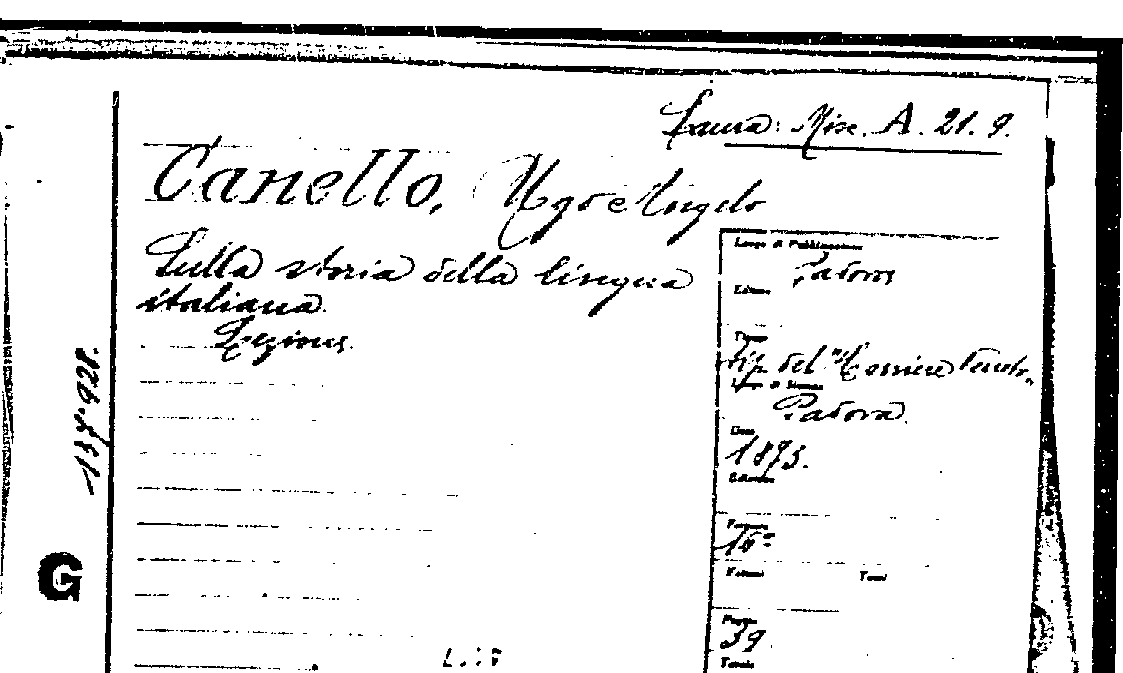 Laura: Misc. A. 21. 9.
Canello, Ugo Angelo
Sulla storia della lingua
italiana.
Lezione.
Luogo di Pubblicazione
Padova
Editore
Tip. del "Corriere Veneto"
Luogo di Stampa
Padova
Data
1873.
Edizione
Formato
16°
Volumi Tomi
Pagine
39
Tavole
137.928.
G